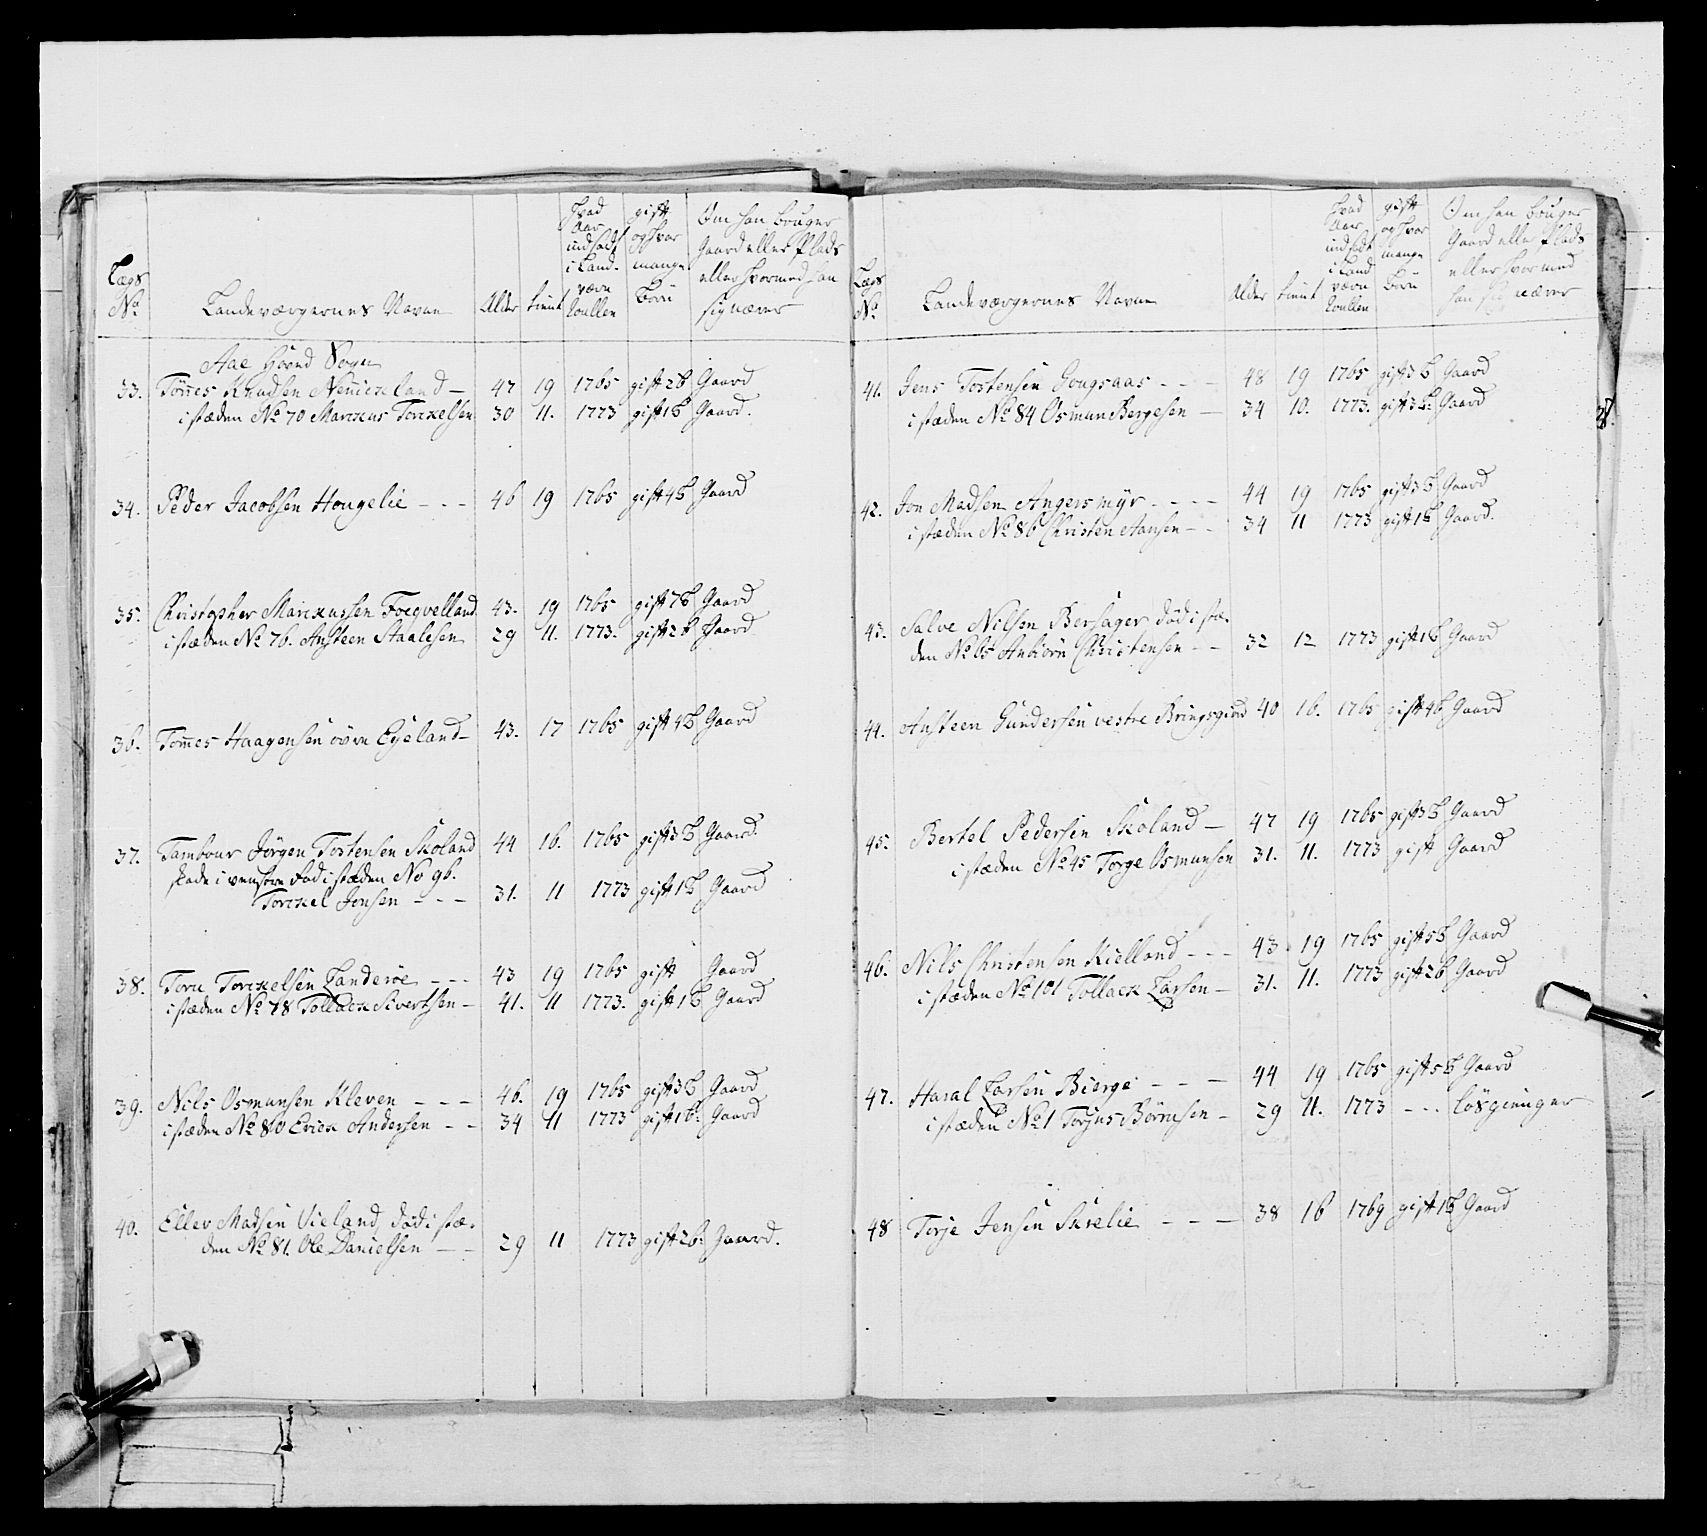 Lægs No. Landeværgernes Navne Alder tient Hvad Aar indsadt i Land- værn Roullen gift og hvor mange Børn Om han bruger Gaard eller Plads eller hvormed han sig nærer
Aaeherred Sogn
33. Tønnes Knudsen Nennickland — 47 19 1765 gift 2 B Gaard
i stæden No 70 Marckus Torckelsen 30 11. 1773 gift 1 B Gaard.
34. Peder Jacobsen Hougelie - - - 46 19 1765 gift 4 B Gaard
35. Christopher Marckussen Foegvelland 43. 19 1765 gift 7 B Gaard
i stæden No 76. Ansteen Staalesen 29 11. 1773. gift 2 B Gaard
36. Tønnes Haagensen øvre Eyeland — 43. 17 1765 gift 4 B Gaard
37. Tambour Jörgen Tostensen Skoland 44 16. 1765 gift 3 B Gaard.
skade i venstre Fod i stæden No 96.
Torckel Jonsen - - - 31. 11 1773 gift 1 B Gaard
38. Tore Torckelsen Landeröe - - - 43 19 1765 gift Gaard
i stæden No 78 Tollack Sivertsen — 41. 11 1773. gift 1 B Gaard
39. Nils Osmunsen Kleven - - - 46. 19 1765 gift 3 B Gaard
i stæden No 80 Erick Andersen - - 34 11 1773 gift 1 B. Gaard
40. Ellev Madsen Vieland, död i stæ-
den No 81. Ole Danielsen - - 29 11 1773 gift 2 B. Gaard.
Lægs No. Landeværgernes Navne Alder tient Hvad Aar indsadt i Land værn Roullen gift og hvor mange Börn Om han bruger Gaard eller Plads eller hvormed han sig nærer
41. Jens Tostensen Gougsaas - - - 48 19 1765 gift 3 B Gaard
i stæden No 84 Osmun Bergesen — 34 10. 1773. gift 3 B. Gaard
42. Jon Madsen Angersmÿr - - - - 44 19 1765 gift 3 B Gaard
i stæden No 86 Christen Hansen - - 34 11 1773 gift 1 B Gaard.
43. Salve Nilsen Bersager död i stæ-
den No 65 Anbiörn Christensen - - 32 12 1773 gift 1 B Gaard
44. Ansteen Gundersen vestre Bringsgind 40 16. 1765 gift 4 B Gaard
45. Bertel Pedersen Skoland — 47 19 1765 gift 3 B Gaard
i stæden No 45 Torge Osmunsen 31. 11. 1773 gift Gaard
46. Nils Christensen Kielland - - - 43 19 1765 gift 5 B Gaard
i stæden No 101 Tollack Larsen — 31. 11. 1773 gift 2 B Gaard
47. Haral Larsen Bierge - - - 44 19 1765 gift 5 B Gaard
i stæden No 1 Torjus Börnsen — 29 11. 1773 - - - lösgienger
48 Torje Jensen Skrelie - - - 38 16 1769 gift 1 B Gaard